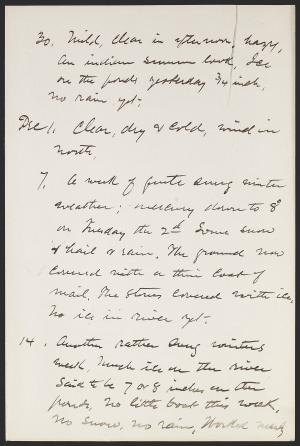 30. Mild, clear in afternoon, hazy,
An indian summer look. Ice
on the ponds yesterday 3/4 inch,
no rain yet.
Dec 1. Clear, dry & cold, wind in
north.
7. A week of quite snug winter
weather; mercury down to 8°
on Tuesday the 2d Some snow
& hail & rain. The ground now
covered with a thin coat of
mail. The stones covered with ice,
No ice in river yet.
14. Another rather snug winters
week. Much ice on the river
Said to be 7 or 8 inches on the
ponds, No little boat this week,
No snow, no rain, Worked nearly